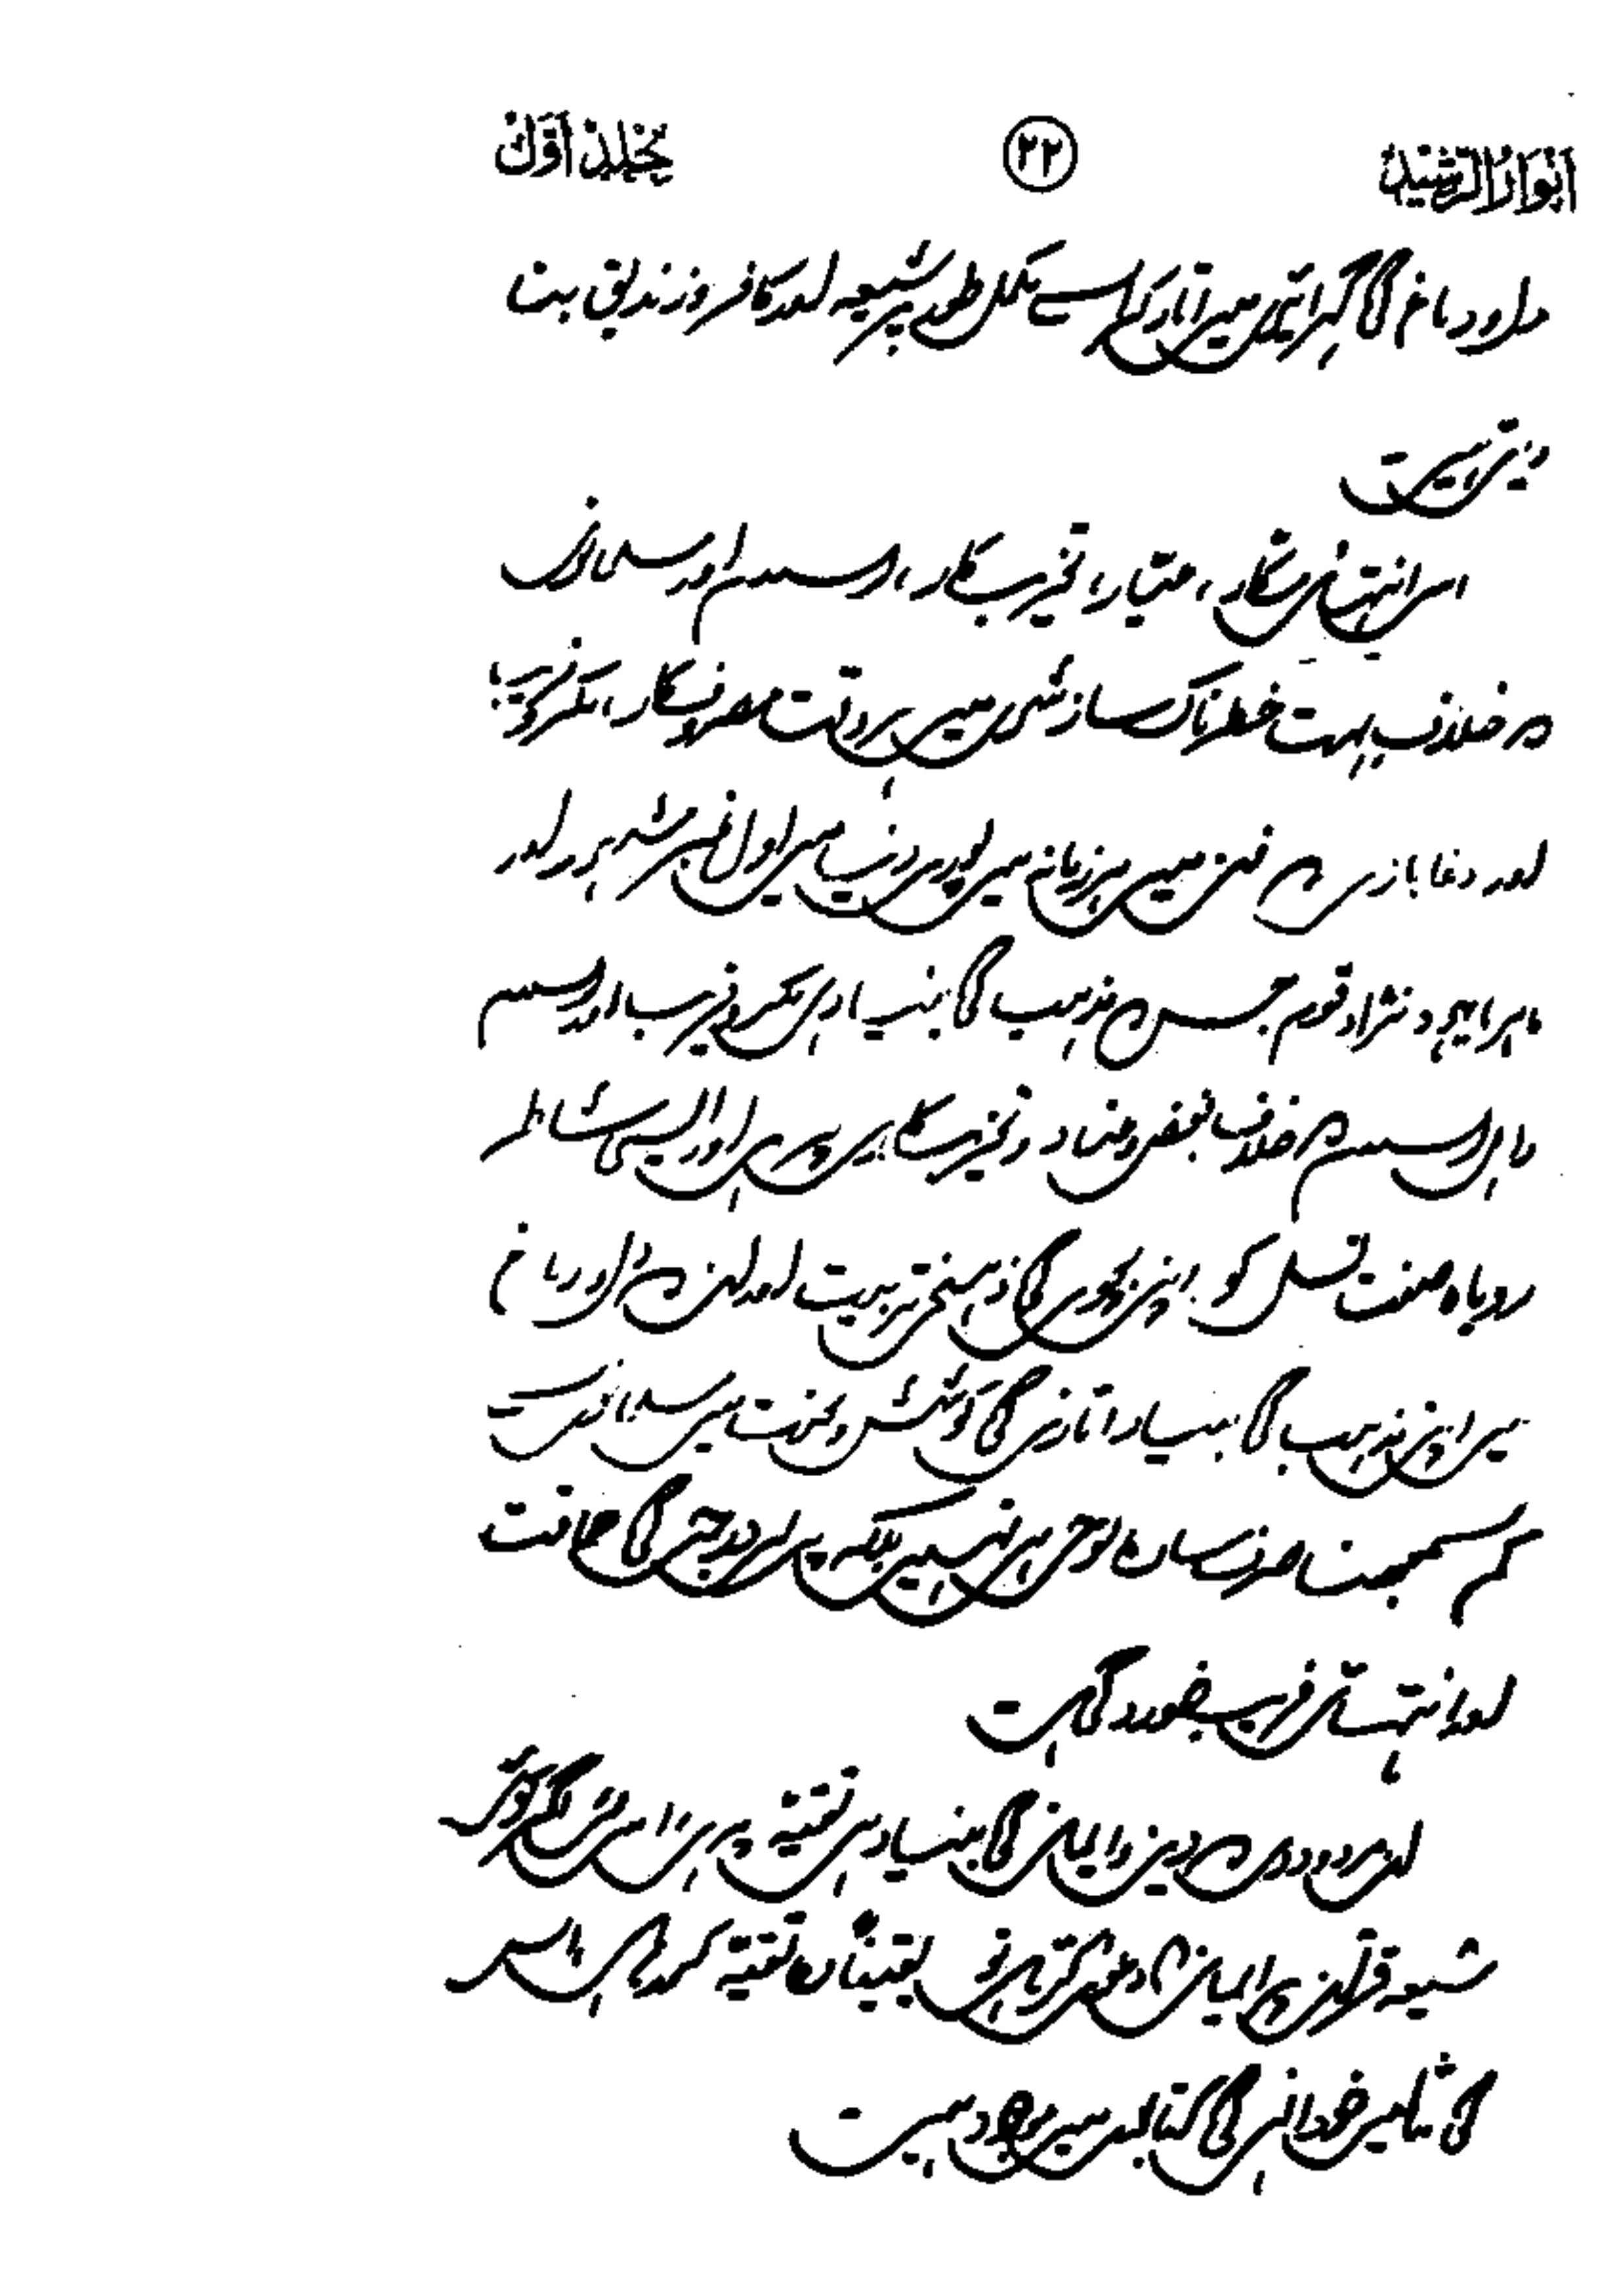 انوار الرشید ۲۲ جلد اول
دل و دماغ کی گہرائی میں اتار کر اسے مکمل طور پر شیعہ اور کافر و زندیق بنا
دیتی ہے۔
اس انتہائی مکار، عیار، تخریب کار، اسلام اور مسلمانوں
کے خلاف بہت خطرناک سازش میں ہر وقت مصروف کار، مکر و فریب
اور دغا بازی کے فن میں ہر زمانہ میں پوری دنیا میں اول نمبر مشہور اور
ماہر یہود نژاد قوم جس کے مذہب کی بنیاد ہی مکر و فریب اور اسلام
و اہل اسلام کے خلاف بغض و عناد و تخریب کاری پر ہے اور ایسی شاطر
روباہ صفت نسل کو اپنے بچوں کی ذہنی تربیت اور ان کے دل و دماغ
میں اپنے مذہب کی بنیاد اتارنے کی کوشش و محنت میں مسلمانوں سے
کم سمجھنا صرف سادہ لوحی ہی نہیں بلکہ پرلے درجے کی حماقت
اور انتہائی فریب خوردگی ہے۔
اس مردود کے دین و ایمان کی بنیاد ہی تقیہ پر ہے، اس لئے اگر کوئی
شیعہ قرآن پر ایمان کا دعویٰ کرتا ہے تو یقیناً وہ تقیہ کر رہا ہے، اس
کی مثالیں خود انہی کی کتابوں میں موجود ہیں۔